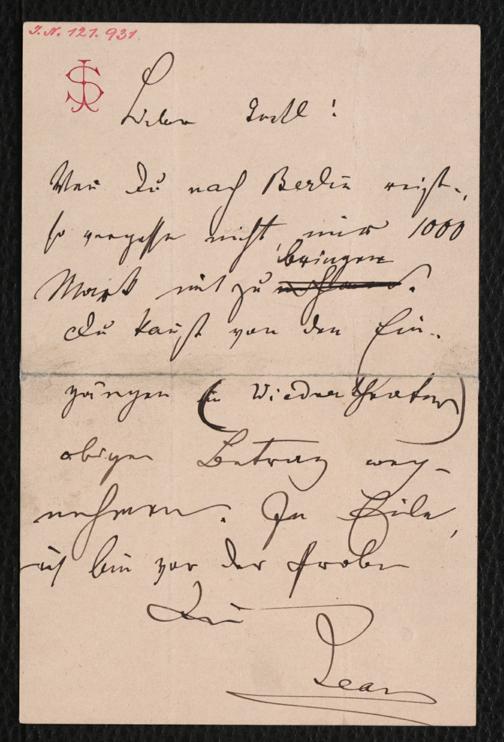 I.N. 121.931
JS
Lieber
Wen Du nach Berlin reist,
so vergesse nicht, mir 1000
Mark mit zu bringen.
Du kanst von den Ein-
gängen (in Wiedner Theater)
obigen Betrag weg-
nehmen. In Eile,
ich bin vor der Probe
Dein
Jean